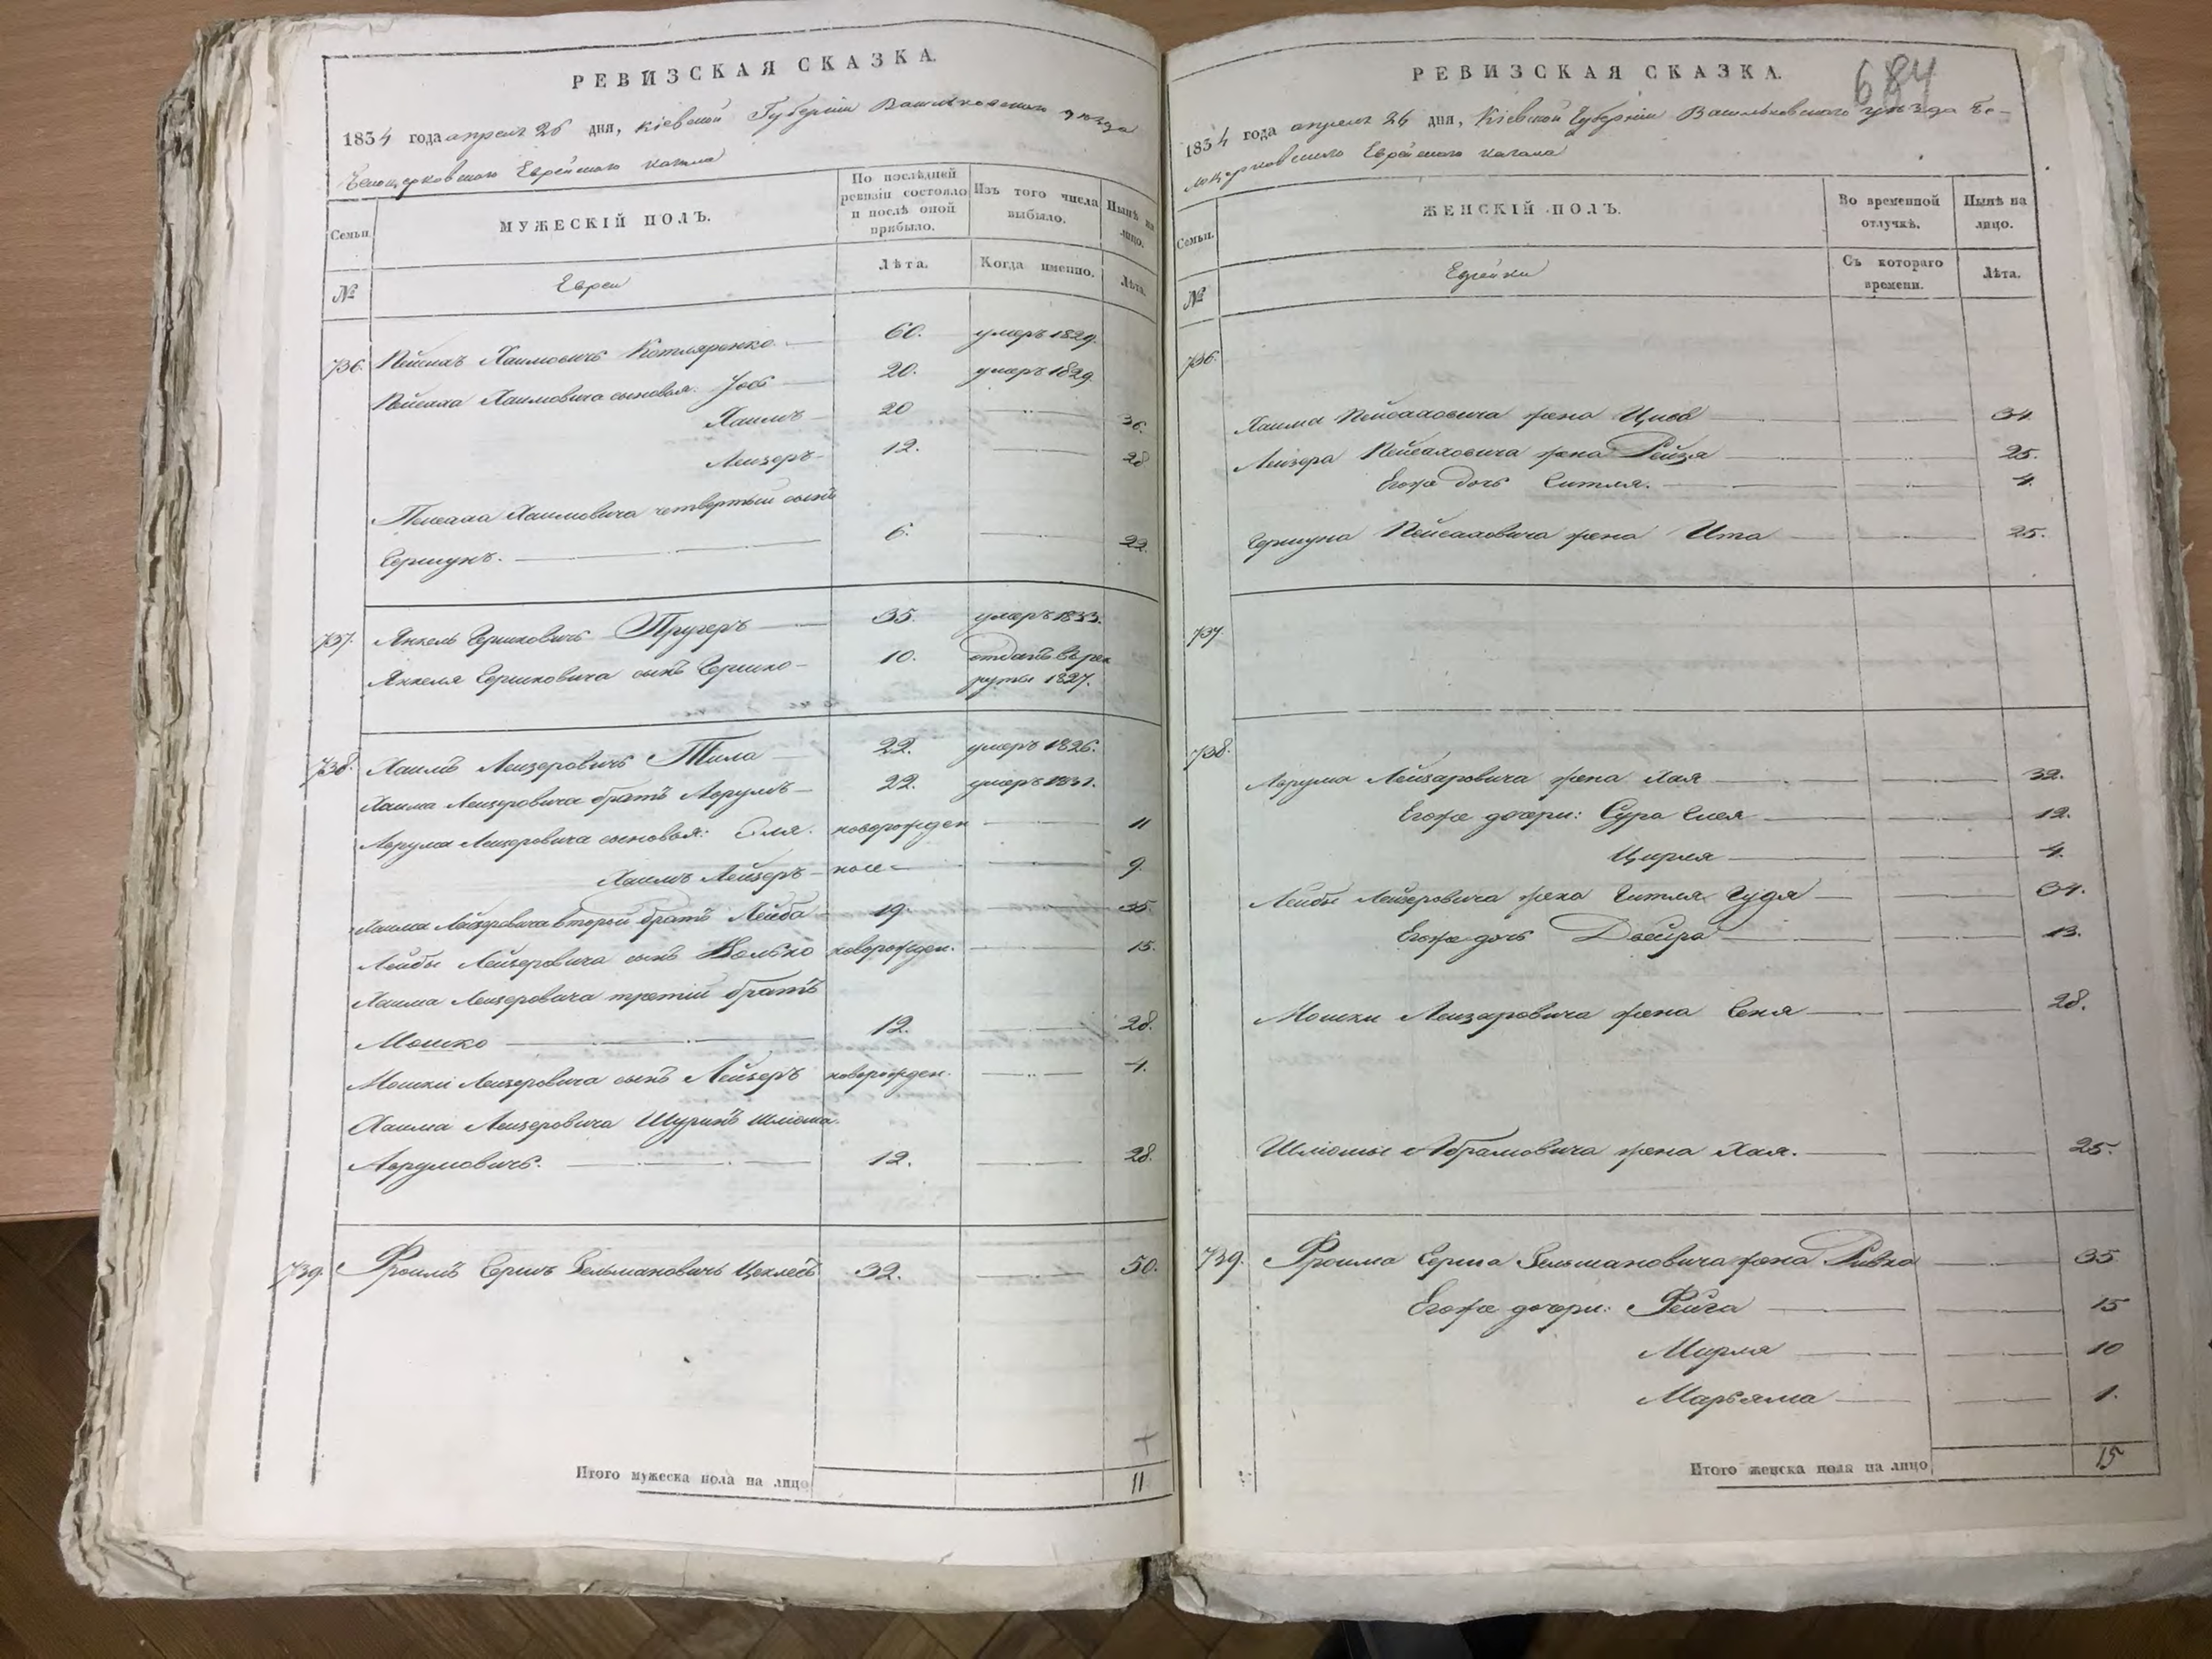 РЕВИЗСКАЯ СКАЗКА.
1834 года апреля 26 дня, Кіевской Губерніи Васильковского уезда
Белоцерковского Еврейского кагала
Семьи
МУЖЕСКІЙ ПОЛЪ.
По послѣдней ревизіи состояло и послѣ оной прибыло.
Изъ того числа выбыло.
Нынѣ на лицо.
№
Евреи
Лѣта.
Когда именно.
Лѣта.
736. Пейсахъ Хаимовичъ Котляренко 60. умеръ 1829.
Пейсаха Хаимовича сыновья: Іосъ 20. умеръ 1829
Хаимъ 20 36.
Лейзеръ 12. 28
Пейсаха Хаимовича четвертый сынъ
Гершунъ. 6. 22.
737. Янкель Гершковичъ Пругеръ 35. умеръ 1833.
Янкеля Гершковича сынъ Гершко 10. отданъ въ рек
руты 1827.
738. Хаимъ Лейзеровичъ Тила 22. умеръ 1826.
Хаима Лейзеровича братъ Аврумъ 22. умеръ 1831.
Аврума Лейзеровича сыновья: Эля. новорожден 11
Хаимъ Лейзеръ 9.
Хаима Лейзеровича второй братъ Лейба 19. 35.
Лейбы Лейзеровича сынъ Волько новорожден. 15.
Хаима Лейзеровича третій братъ
Мошко 12. 28.
Мошки Лейзеровича сынъ Лейзеръ новорожден. 4.
Хаима Лейзеровича Шуринъ Шліома
Аврумовичъ. 12. 28.
739. Фроимъ Гершъ Зельмановичъ 32. 50.
Итого мужеска пола на лицо 11
684
РЕВИЗСКАЯ СКАЗКА.
1834 года апреля 26 дня, Кіевской Губерніи Васильковского уезда Бе-
лоцерковского Еврейского кагала
Семьи.
ЖЕНСКІЙ ПОЛЪ.
Во временной отлучкѣ.
Нынѣ на лицо.
№
Еврейки
Съ котораго времени.
Лѣта.
736.
Хаима Пейсаховича жена Цивья 34.
Лейзера Пейсаховича жена Рейзя 25.
Егоже дочь Гитля. 4.
Гершуна Пейсаховича жена Ита 25.
737.
738.
Аврума Лейзаровича жена Хая 32.
Егоже дочери: Сура 12.
Цирля 4.
Лейбы Лейзеровича жена Гитля Гудя 34.
Егоже дочь Двейра 13.
Мошки Лейзаровича жена Геня 28.
Шліомы Абрамовича жена Хая. 25.
739. Фроима Герша Зельмановича жена Ривка 35
Егоже дочери: Фейга 15
Мирля 10
Марьяма 1.
Итого женска пола на лицо 15